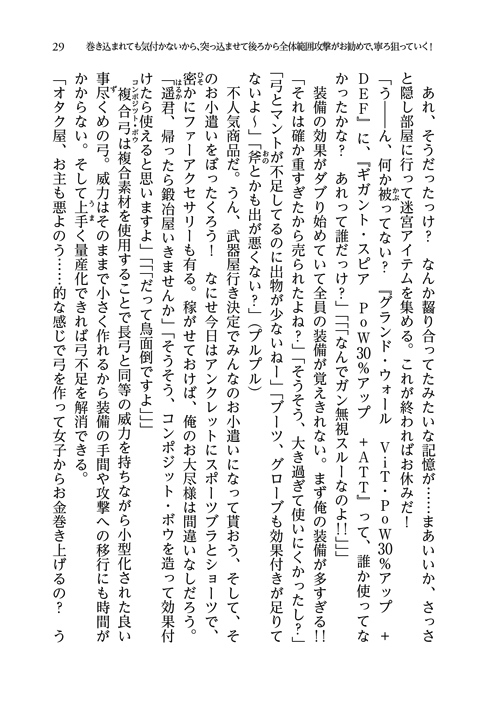 29
巻き込まれても気付かないから、突っ込ませて後ろから全体範囲攻撃がお勧めで、寧ろ狙っていく!
あれ、そうだったっけ? なんか齧り合ってたみたいな記憶が……まあいいか、さっさ
と隠し部屋に行って迷宮アイテムを集める。これが終わればお休みだ!
「う――ん、何か被ってない? 『グランド・ウォール ViT・PoW30%アップ +
DEF』に、『ギガント・スピア PoW30%アップ +ATT』って、誰か使ってな
かったかな? あれって誰だっけ?」「「「なんでガン無視スルーなのよ!!」」」
装備の効果がダブり始めていて全員の装備が覚えきれない。まず俺の装備が多すぎる!!
「それは確か重すぎたから売られたよね?」「そうそう、大き過ぎて使いにくかったし?」
「弓とマントが不足してるのに出物が少ないねー」「ブーツ、グローブも効果付きが足りて
ないよ～」「斧とかも出が悪くない?」(プルプル)
不人気商品だ。うん、武器屋行き決定でみんなのお小遣いになって貰おう、そして、そ
のお小遣いをぼったくろう! なにせ今日はアンクレットにスポーツブラとショーツで、
密かにファーアクセサリーも有る。稼がせておけば、俺のお大尽様は間違いなしだろう。
「遥君、帰ったら鍛冶屋いきませんか」「そうそう、コンポジット・ボウを造って効果付
けたら使えると思いますよ」「「だって鳥面倒ですよ」」
複合弓は複合素材を使用することで長弓と同等の威力を持ちながら小型化された良い
事尽くめの弓。威力はそのままで小さく作れるから装備の手間や攻撃への移行にも時間が
かからない。そして上手く量産化できれば弓不足を解消できる。
「オタク屋、お主も悪よのう……的な感じで弓を作って女子からお金巻き上げるの? う